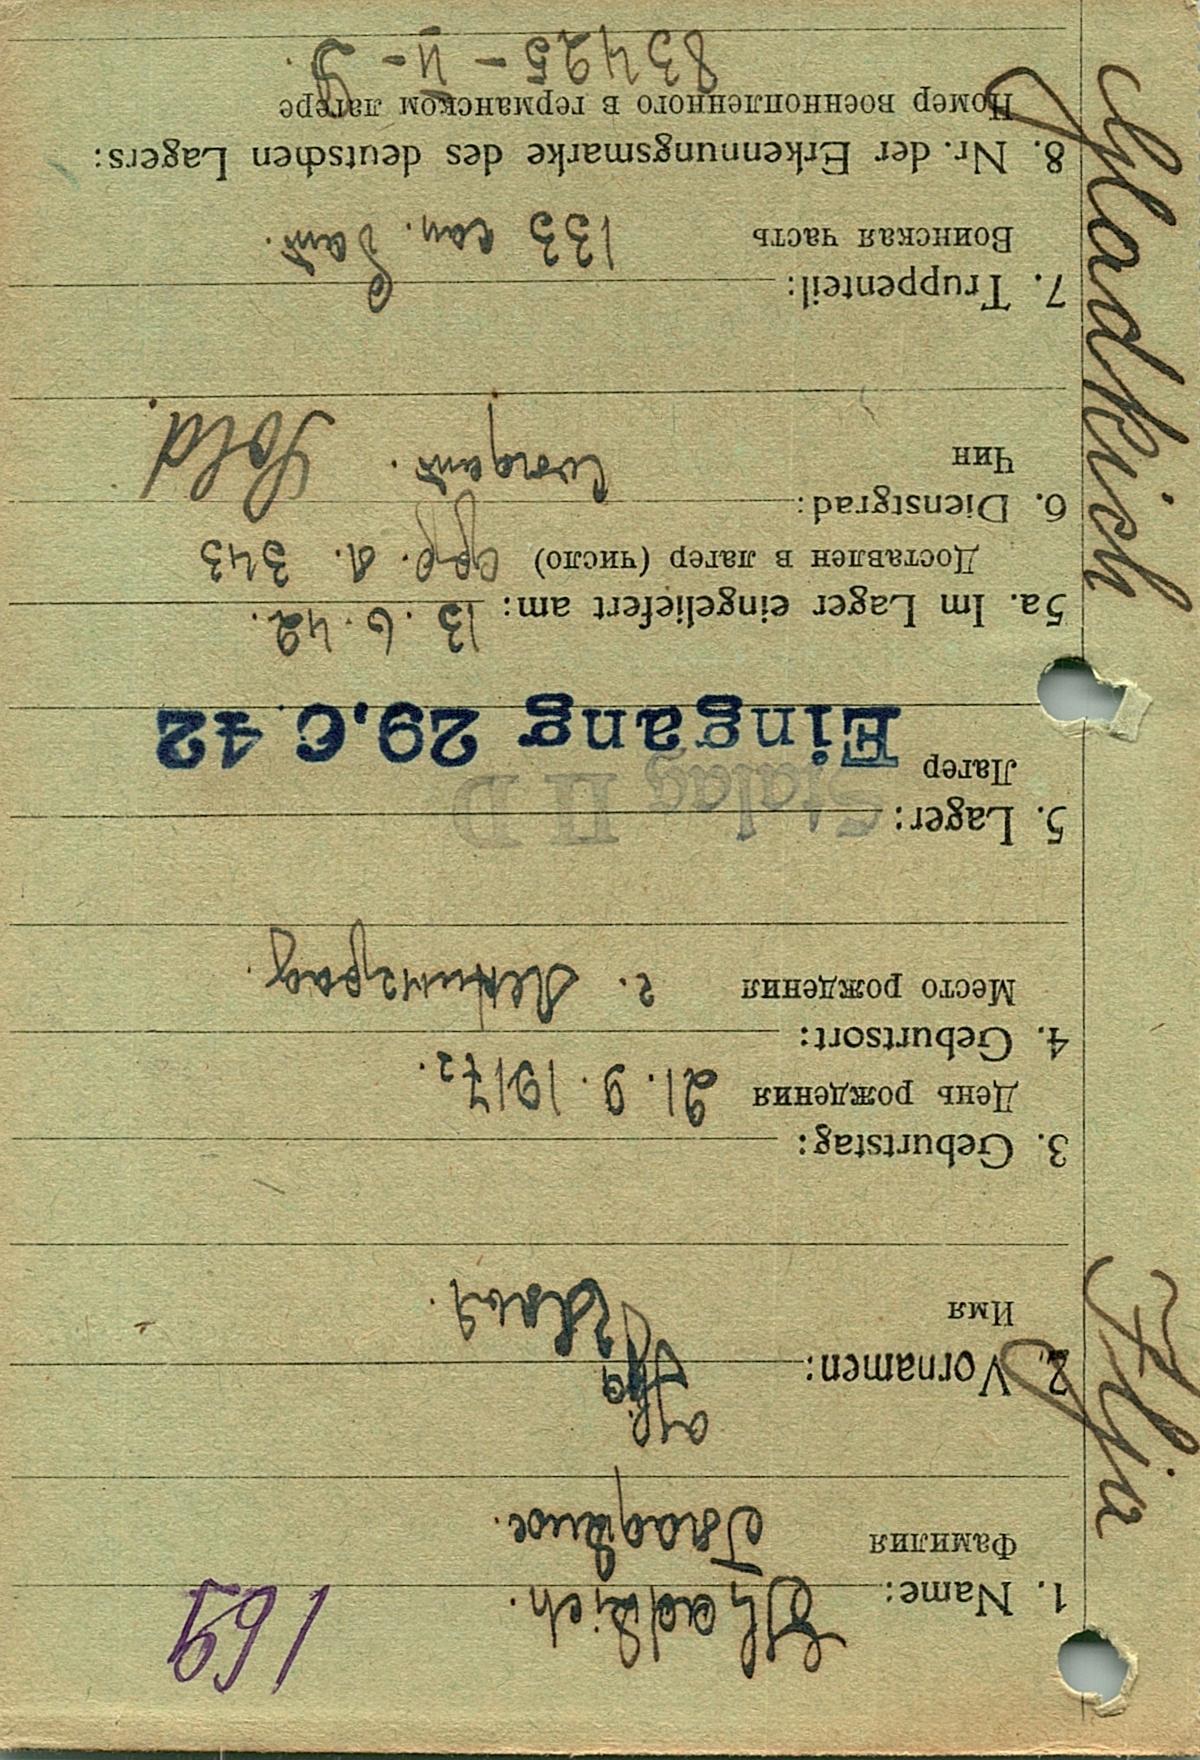 1. Name: Gladkich.
Фамилия Гладких.
2. Vornamen: Ilja
Имя Илья.
3. Geburtstag:
День рождения 21.9.1917 г.
4. Geburtsort:
Место рождения г. Ленинград.
5. Lager: Stalag II D
Лагер Eingang 29.6.42
5a. Im Lager eingeliefert am: 13.6.42.
Доставлен в лагер (число) 343
6. Dienstgrad:
Чин солдат. Sold.
7. Truppenteil:
Воинская часть 133 сап. бат.
8. Nr. der Erkennungsmarke des deutschen Lagers:
Номер военнопленного в германском лагере
83425 - II -
Ilja Gladkich